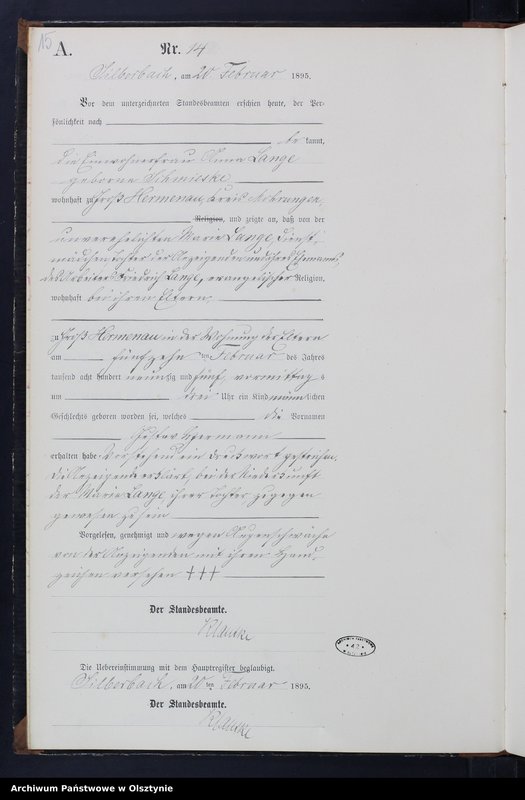 15
A.
Nr. 14
Silberbach, am 20. Februar 1895.
Vor dem unterzeichneten Standesbeamten erschien heute, der Per-
sönlichkeit nach
be kannt,
die Einwohnerfrau Anna Lange
geborne Schmieske
wohnhaft zu Groß Hermenau, Kreis Mohrungen
Religion, und zeigte an, daß von der
unverehelichten Marie Lange, Dienst-
mädchen Tochter der Anzeigenden und ihres Ehemannes,
des Arbeiters Friedrich Lange, evangelischer Religion,
wohnhaft bei ihren Eltern
zu Groß Hermenau in der Wohnung der Eltern
am fünfzehn ten Februar des Jahres
tausend acht hundert neunzig und fünf vormittag s
um drei Uhr ein Kind männlichen
Geschlechts geboren worden sei, welches die Vornamen
Gustav Hermann
erhalten habe. Vorstehend ein Druckwort gestrichen.
Die Anzeigende erklärt, bei der Niederkunft
der Marie Lange ihrer Tochter zugegen
gewesen zu sein
Vorgelesen, genehmigt und wegen Augenschwäche
von der Anzeigenden mit ihrem Hand-
zeichen versehen +++
Der Standesbeamte.
Klautke
Die Uebereinstimmung mit dem Hauptregister beglaubigt.
Silberbach, am 20 ten Februar 1895.
Der Standesbeamte.
Klautke
Archiwum Państwowe w Olsztynie